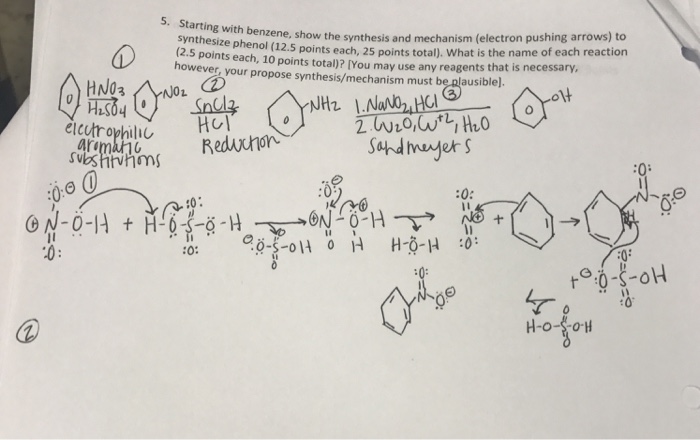 5. Starting with benzene, show the synthesis and mechanism (electron pushing arrows) to
synthesize phenol (12.5 points each, 25 points total). What is the name of each reaction
(2.5 points each, 10 points total)? [You may use any reagents that is necessary,
however, your propose synthesis/mechanism must be plausible].
①
HNO3
H2SO4
NO2
electrophilic
aromatic
substitutions
②
SnCl2
HCl
Reduction
NH2
③
1. NaNO2, HCl
2. Cu2O, Cu+2, H2O
Sandmeyers
OH
①
:Ö:⊖
⊕N-Ö-H + H-Ö-S-Ö-H
:O:
:O:
:O:
:Ö:⊖
⊕N-Ö-H
O H
⊖:Ö-S-OH
O
H-Ö-H
:O:
N⊕ +
:O:
:O:
N-Ö:⊖
H
+⊖:Ö-S-OH
:O:
:O:
:O:
N-Ö:⊖
O
H-O-S-O-H
O
②